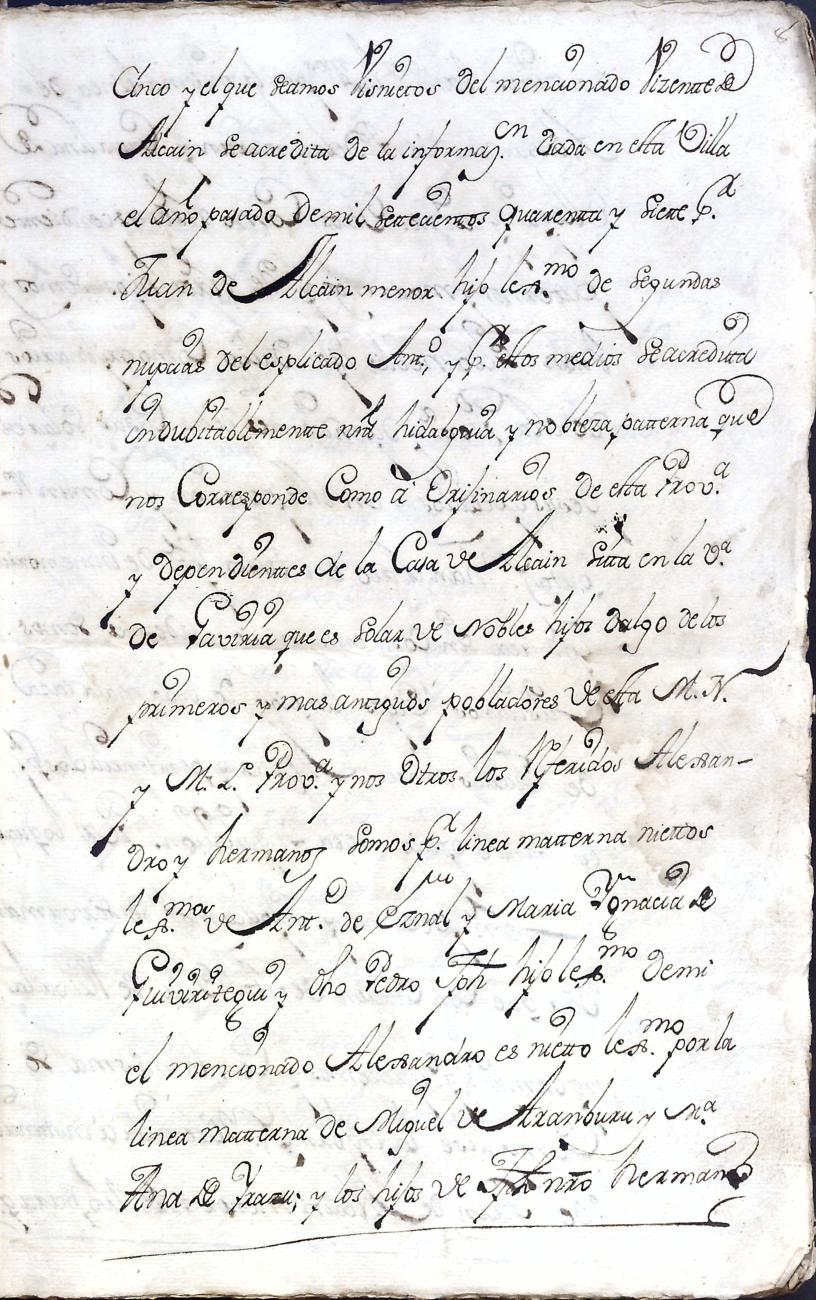 Cinco y el que seamos Visnietos del mencionado Vizente de
Alcain se acredita de la informaz.on dada en esta Villa
el año pasado de mil settecientos quarenta y siete p.r
Juan de Alcain menor hijo lex.mo de segundas
nupcias del esplicado Ant.o, y p.r estos medios se acreditta
indubitablemente nrã hidalguia y nobleza patterna que
nos Corresponde Como â Orijinarios de esta Prov.a
y dependienttes de la Casa de Alcain sitta en la v.a
de Gaviria que es solar de Nobles hijos dalgo de los
primeros y mas antiguos pobladores de esta M. N.
y M. L. Prov.a y nos otros los Referidos Alexan-
dro y hermanos somos p.r linea matterna niettos
lex.mos de Ant.o de Eznal y Maria Ygnacia de
y dho Pedro Jph hijo lex.mo de mi
el mencionado Alexandro es nietto lex.mo por la
linea matterna de Miguel de Aranburu y M.a
Ana de Yrazu; y los hijos de Jph nrõ hermano